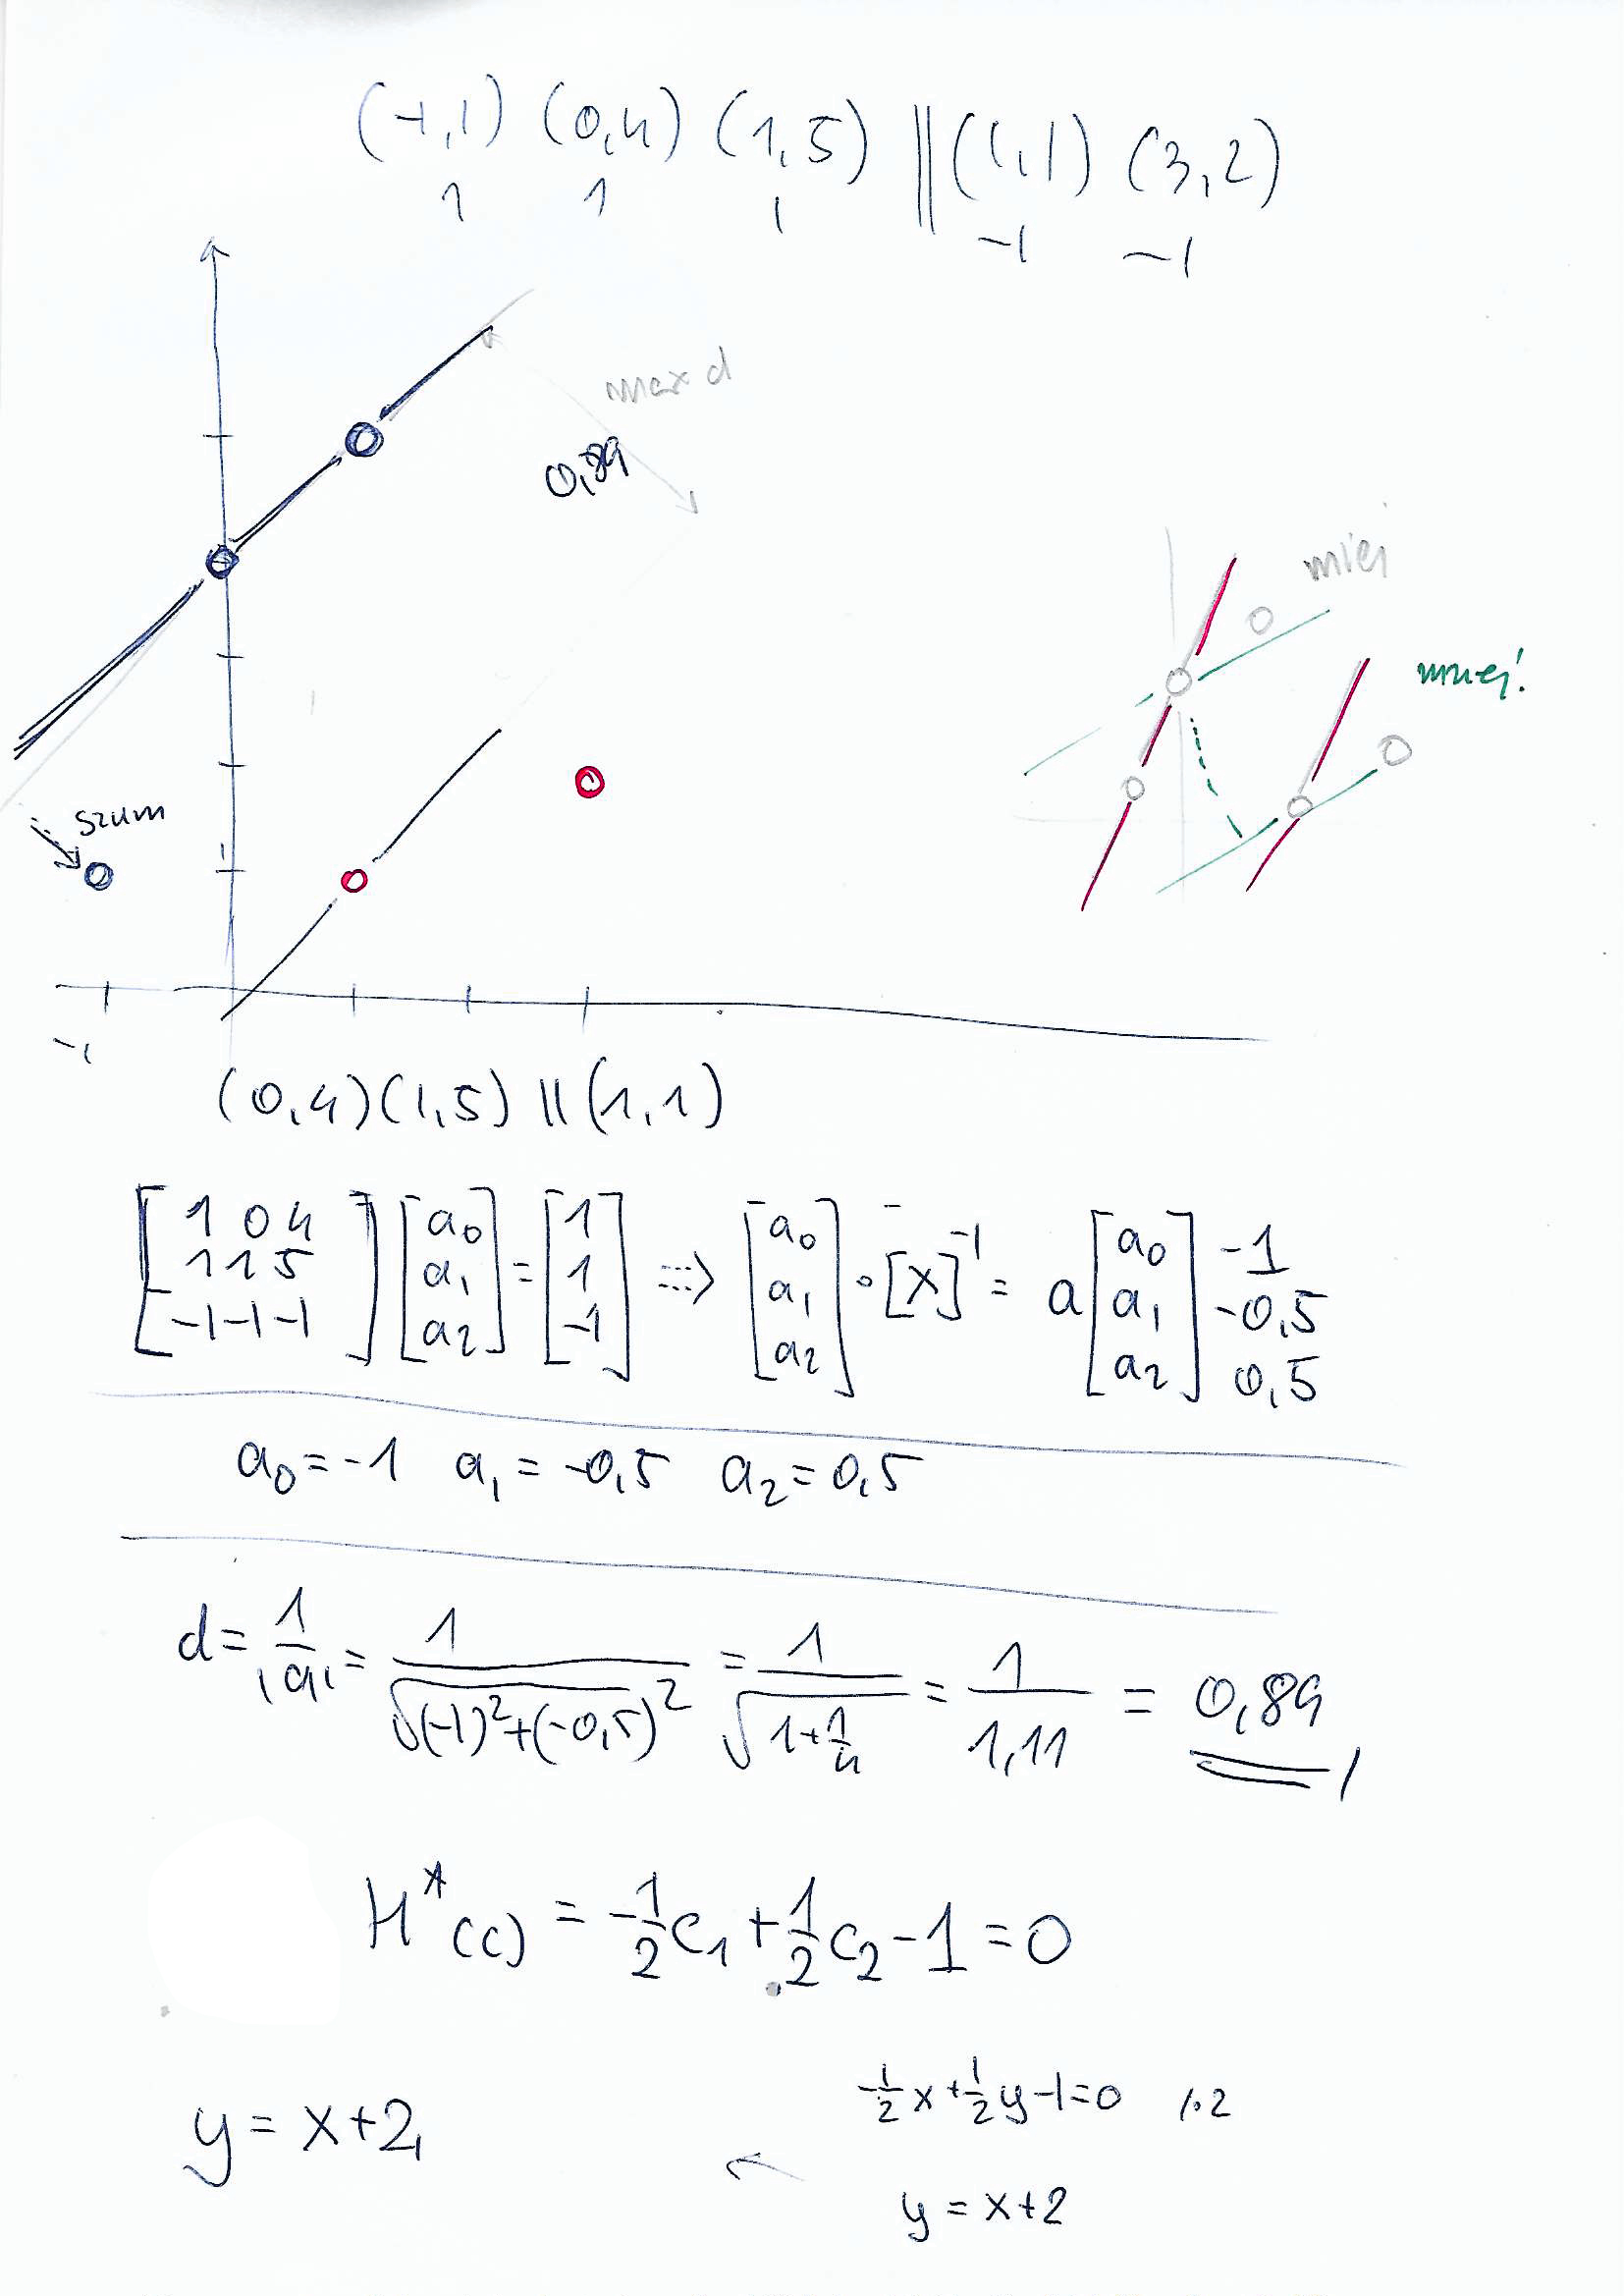 (-1,1) (0,4) (1,5) || (1,1) (3,2)
1 1 1 -1 -1
max d
0,89
mniej
mniej!
szum
1
-1
(0,4)(1,5) || (1,1)
[1 0 4 / 1 1 5 / -1 -1 -1] [a0 / a1 / a2] = [1 / 1 / -1] => [a0 / a1 / a2] • [X]^-1 = a [a0 / a1 / a2] -1 / -0,5 / 0,5
a0 = -1 a1 = -0,5 a2 = 0,5
d = 1/|a| = 1/√(-1)²+(-0,5)² = 1/√1+1/4 = 1/1,11 = 0,89
H*(c) = -1/2 c1 + 1/2 c2 - 1 = 0
-1/2 x + 1/2 y - 1 = 0 /·2
y = x+2
y = x+2